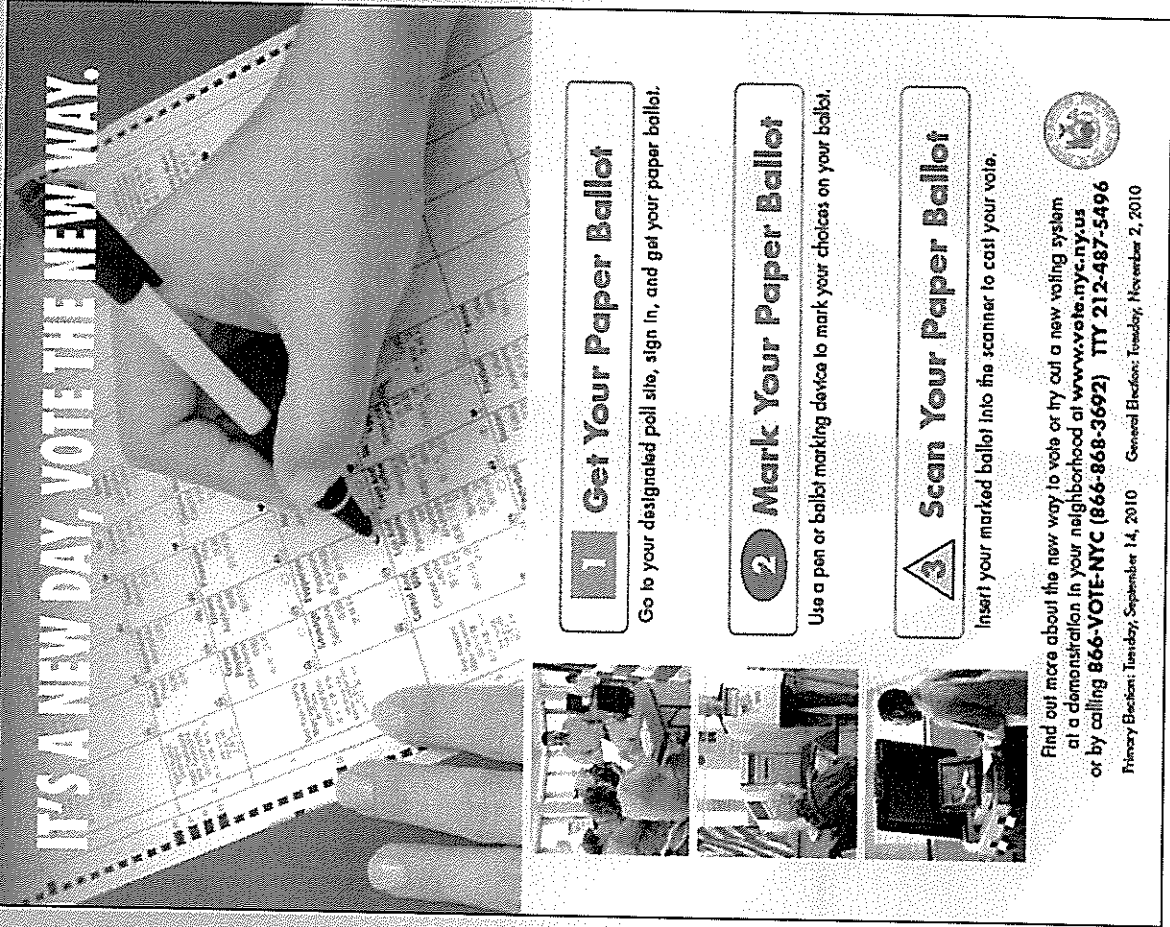 IT'S A NEW DAY, VOTE THE NEW WAY.
1 Get Your Paper Ballot
Go to your designated poll site, sign in, and get your paper ballot.
2 Mark Your Paper Ballot
Use a pen or ballot marking device to mark your choices on your ballot.
3 Scan Your Paper Ballot
Insert your marked ballot into the scanner to cast your vote.
Find out more about the new way to vote or try out a new voting system
at a demonstration in your neighborhood at www.vote.nyc.ny.us
or by calling 866-VOTE-NYC (866-868-3692) TTY 212-487-5496
Primary Election: Tuesday, September 14, 2010 General Election: Tuesday, November 2, 2010